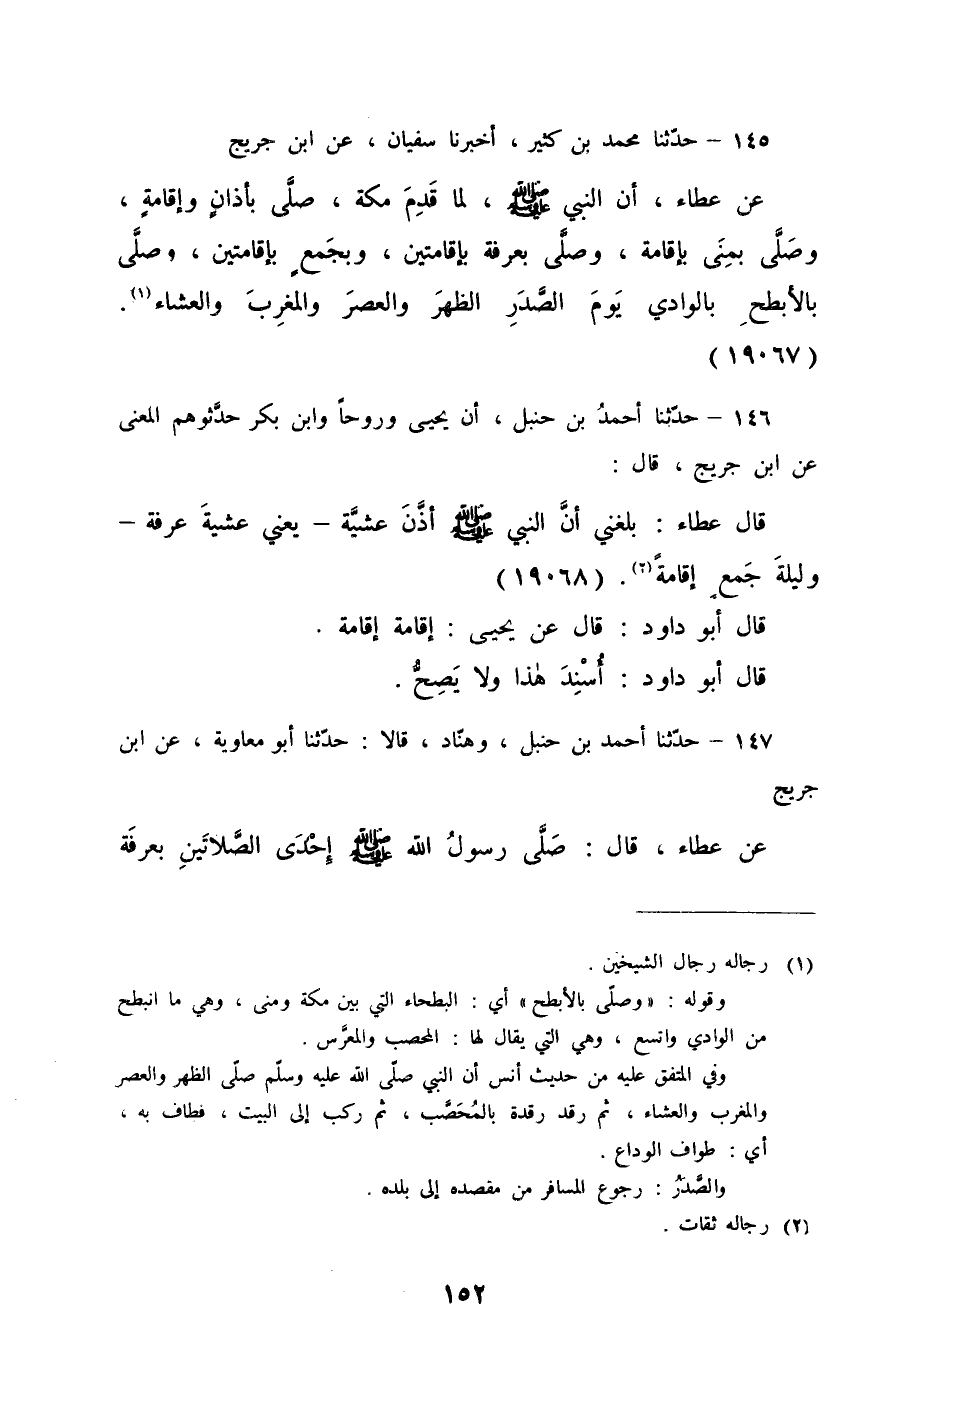 ١٤٥ – حدّثنا محمد بن كثير ، أخبرنا سفيان ، عن ابن جريج
عن عطاء ، أن النبي ﷺ ، لما قَدِمَ مكة ، صلَّى بأذانٍ وإقامةٍ ،
وصَلَّى بمِنَى بإقامة ، وصلَّى بعرفة بإقامتين ، وبجَمعٍ بإقامتين ، وصلَّى
بالأبطحِ بالوادي يَومَ الصَّدَرِ الظهرَ والعصرَ والمغرِبَ والعشاء(١).
(١٩٠٦٧)
١٤٦ – حدّثنا أحمدُ بن حنبل ، أن يحيى وروحاً وابن بكر حدَّثوهم المعنى
عن ابن جريج ، قال :
قال عطاء : بلغني أنَّ النبي ﷺ أذَّنَ عشيَّة – يعني عشيةَ عرفة –
وليلةَ جَمعٍ إقامةً(٢). (١٩٠٦٨)
قال أبو داود : قال عن يحيى : إقامة إقامة .
قال أبو داود : أُسْنِدَ هٰذا ولا يَصِحُّ .
١٤٧ – حدّثنا أحمد بن حنبل ، وهنّاد ، قالا : حدّثنا أبو معاوية ، عن ابن
جريج
عن عطاء ، قال : صَلَّى رسولُ الله ﷺ إِحْدَى الصَّلاتَينِ بعرفَة
(١) رجاله رجال الشيخين .
وقوله : «وصلّى بالأبطح» أي : البطحاء التي بين مكة ومنى ، وهي ما انبطح
من الوادي واتسع ، وهي التي يقال لها : المحصب والمعرَّس .
وفي المتفق عليه من حديث أنس أن النبي صلّى الله عليه وسلّم صلّى الظهر والعصر
والمغرب والعشاء ، ثم رقد رقدة بالمُحَصَّب ، ثم ركب إلى البيت ، فطاف به ،
أي : طواف الوداع .
والصَّدَرُ : رجوع المسافر من مقصده إلى بلده .
(٢) رجاله ثقات .
١٥٢